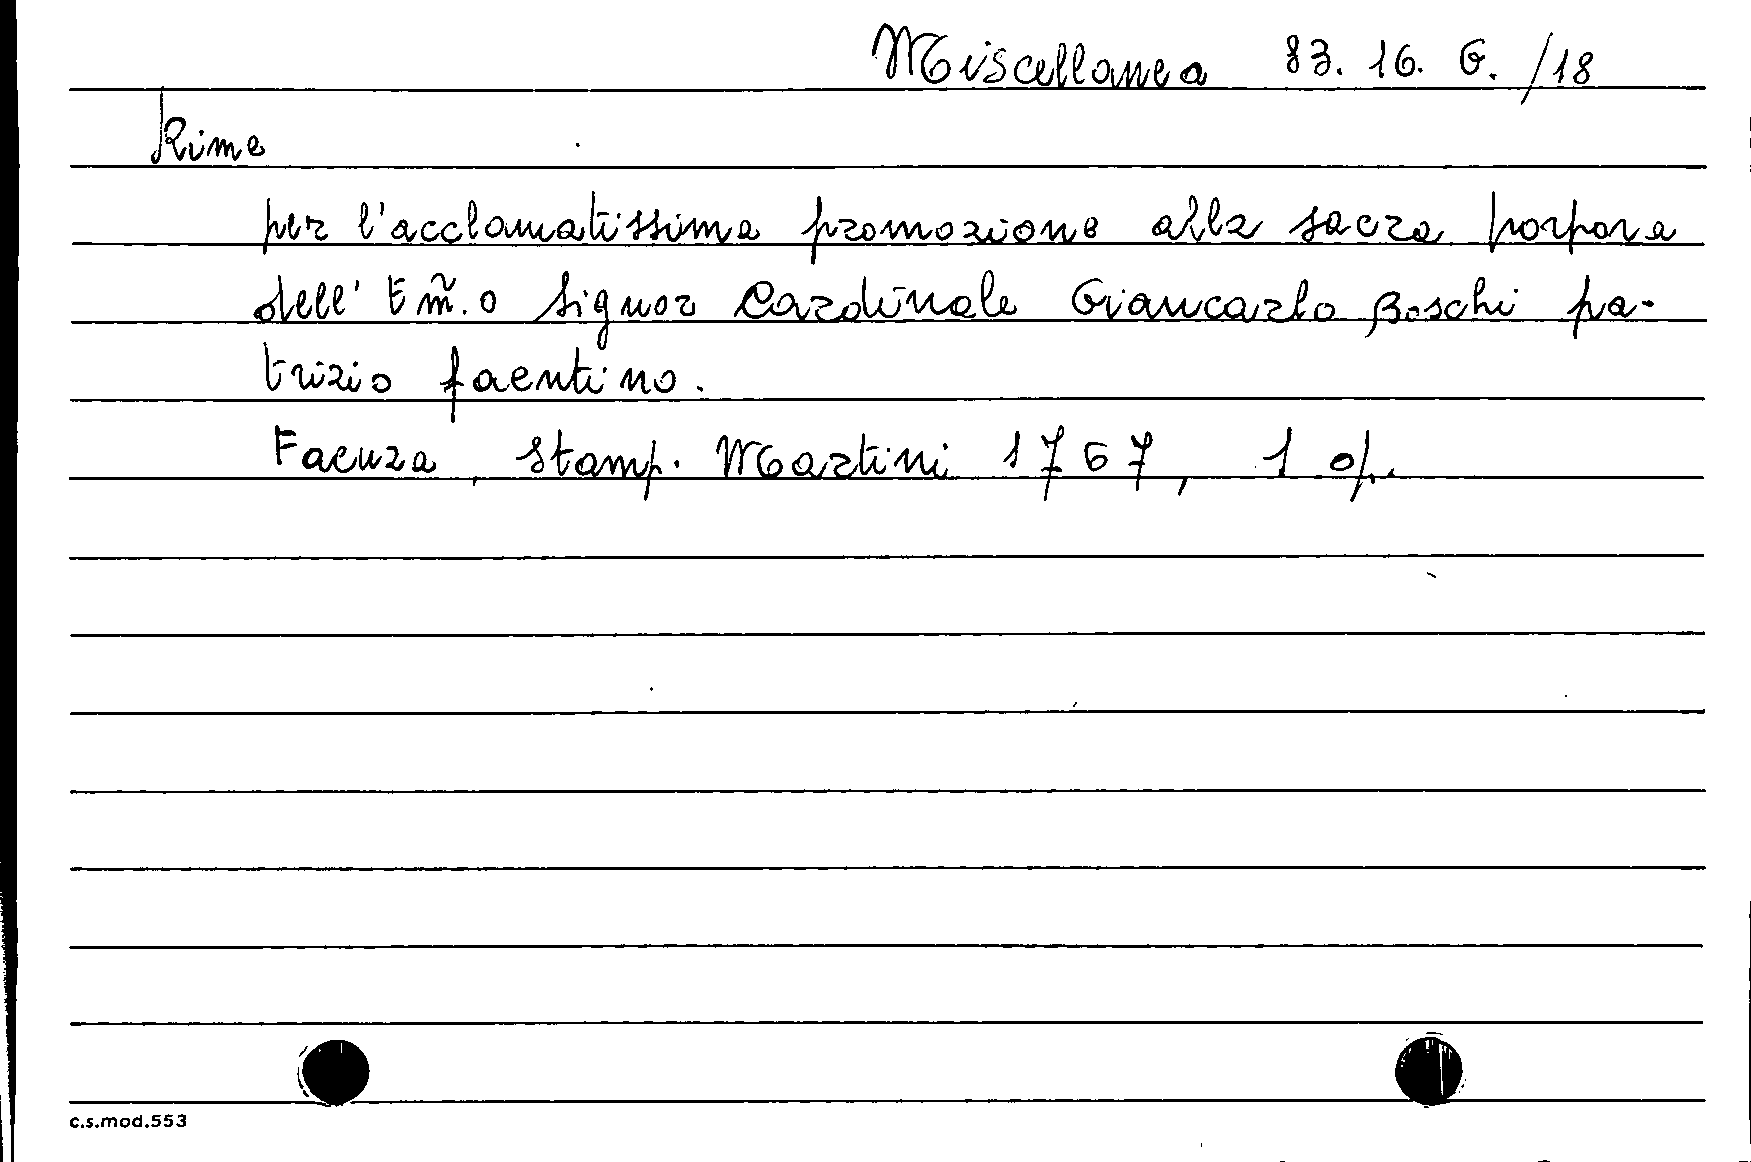 Miscellanea 83. 16. G. /18
Rime
per l'acclamatissima promozione alla sacra porpora
dell' Em̃.o Signor Cardinale Giancarlo Boschi pa-
trizio faentino.
Faenza, stamp. Martini 1767, 1 op.
c.s.mod.553